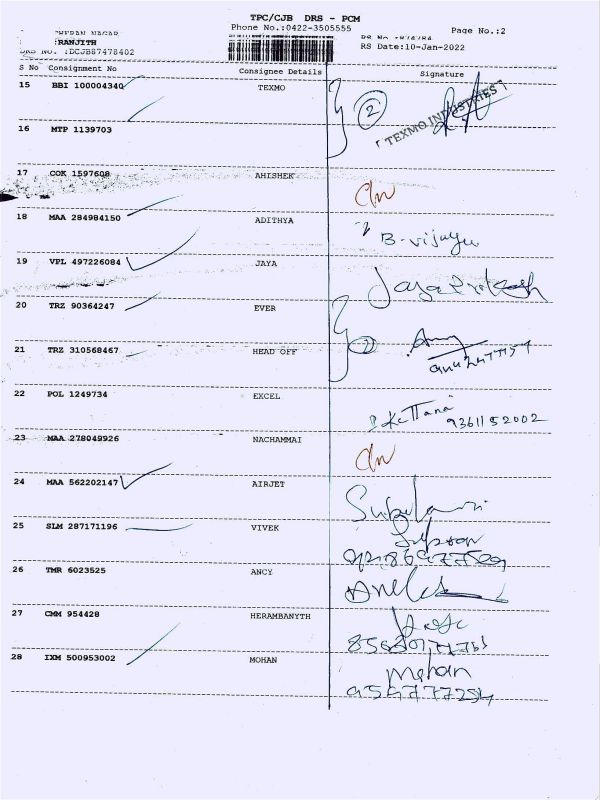 TPC/CJB DRS - PCM
Phone No.:0422-3505555 Page No.:2
RANJITH
DRS No. :DCJB87478402 RS Date:10-Jan-2022
S No Consignment No Consignee Details Signature
15 BBI 100004340 TEXMO 2 TEXMO INDUSTRIES
16 MTP 1139703
17 COK 1597608 AHISHEK
18 MAA 284984150 ADITHYA
B-vijayu
19 VPL 497226084 JAYA
Jayaprakash
20 TRZ 90364247 EVER
21 TRZ 310568467 HEAD OFF 2
22 POL 1249734 EXCEL
9361152002
23 MAA 278049926 NACHAMMAI
24 MAA 562202147 AIRJET
25 SLM 287171196 VIVEK
26 TMR 6023525 ANCY
27 CMM 954428 HERAMBANYTH
28 IXM 500953002 MOHAN
Mohan